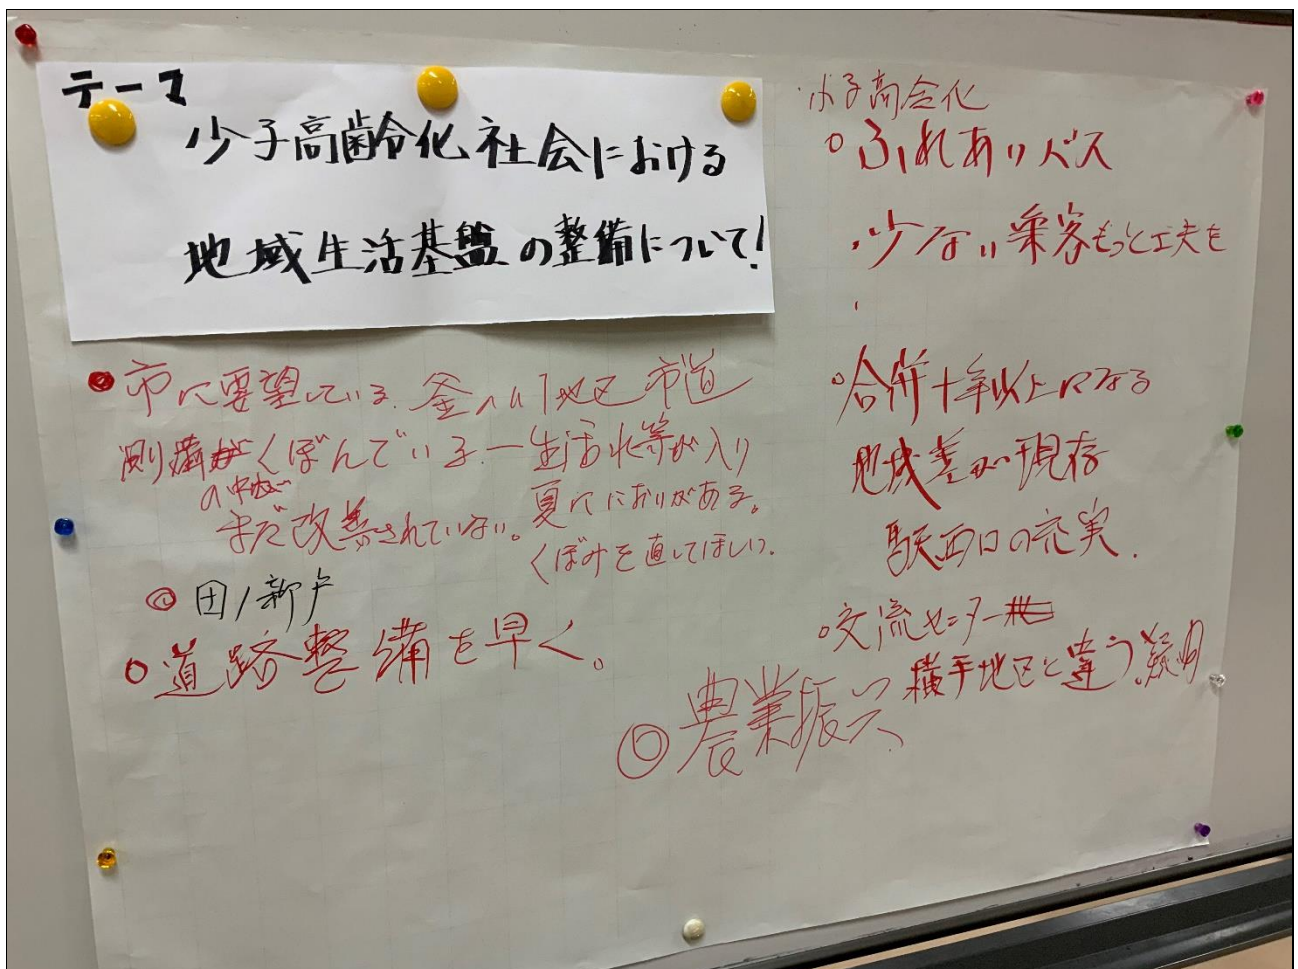 テーマ
少子高齢化社会における
地域生活基盤の整備について!
◎市に要望している. 地区 市道
側溝 くぼんでいる. 生活水等が入り
の中が
まだ改善されていない。夏ににおいがある。
くぼみを直してほしい.
◎田ノ新戸
○道路整備を早く。
少子高令化
○ふれあいバス
・少ない乗客もっと工夫を
○合併十年以上になる
地域差が現存
駅西口の充実.
○交流センター
横手地区と違う.疑問
◎農業振興